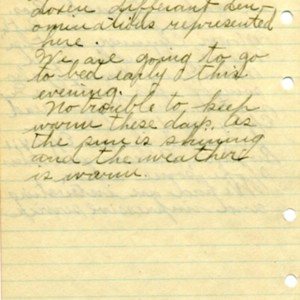 dozen differant den-
ominations represented
here.
We are going to go
to bed early this
evening.
No trouble to keep
warm these days. as
the sun is shining
and the weather
is warm.